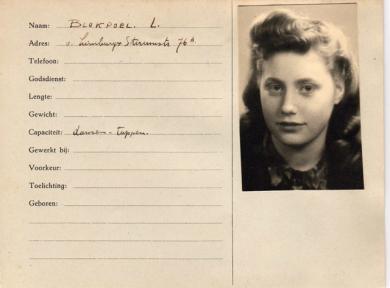 Naam: BLOKPOEL. L.
Adres: v. Limburg Stirumstr 76ᴬ
Telefoon:
Godsdienst:
Lengte:
Gewicht:
Capaciteit: dansen - tappen.
Gewerkt bij:
Voorkeur:
Toelichting:
Geboren: